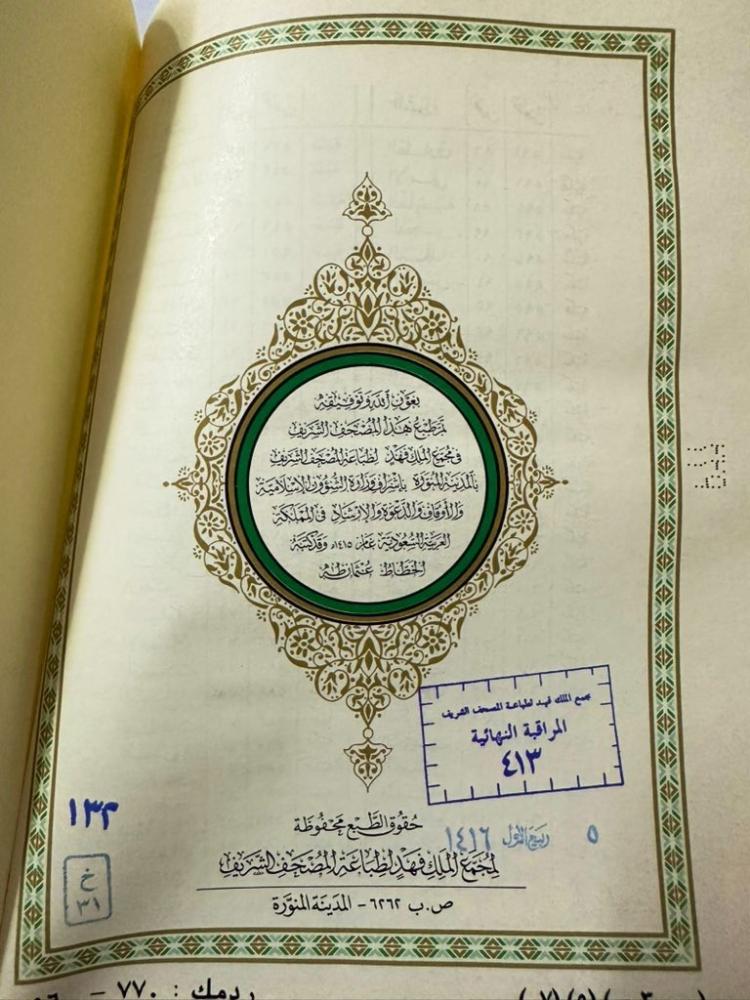 بعون الله وتوفيقه
تم طبع هذا المصحف الشريف
في مجمع الملك فهد لطباعة المصحف الشريف
بالمدينة المنورة بإشراف وزارة الشؤون الإسلامية
والأوقاف والدعوة والإرشاد في المملكة
العربية السعودية عام ١٤١٥ه وقد كتبه
الخطاط عثمان طه
مجمع الملك فهد لطباعة المصحف الشريف
المراقبة النهائية
٤١٣
١٣٢
حقوق الطبع محفوظة
٥ ربيع الأول ١٤١٦
لمجمع الملك فهد لطباعة المصحف الشريف
خ
٣١
ص.ب ٦٢٦٢ - المدينة المنورة
ردمك : ٧٧٠ -